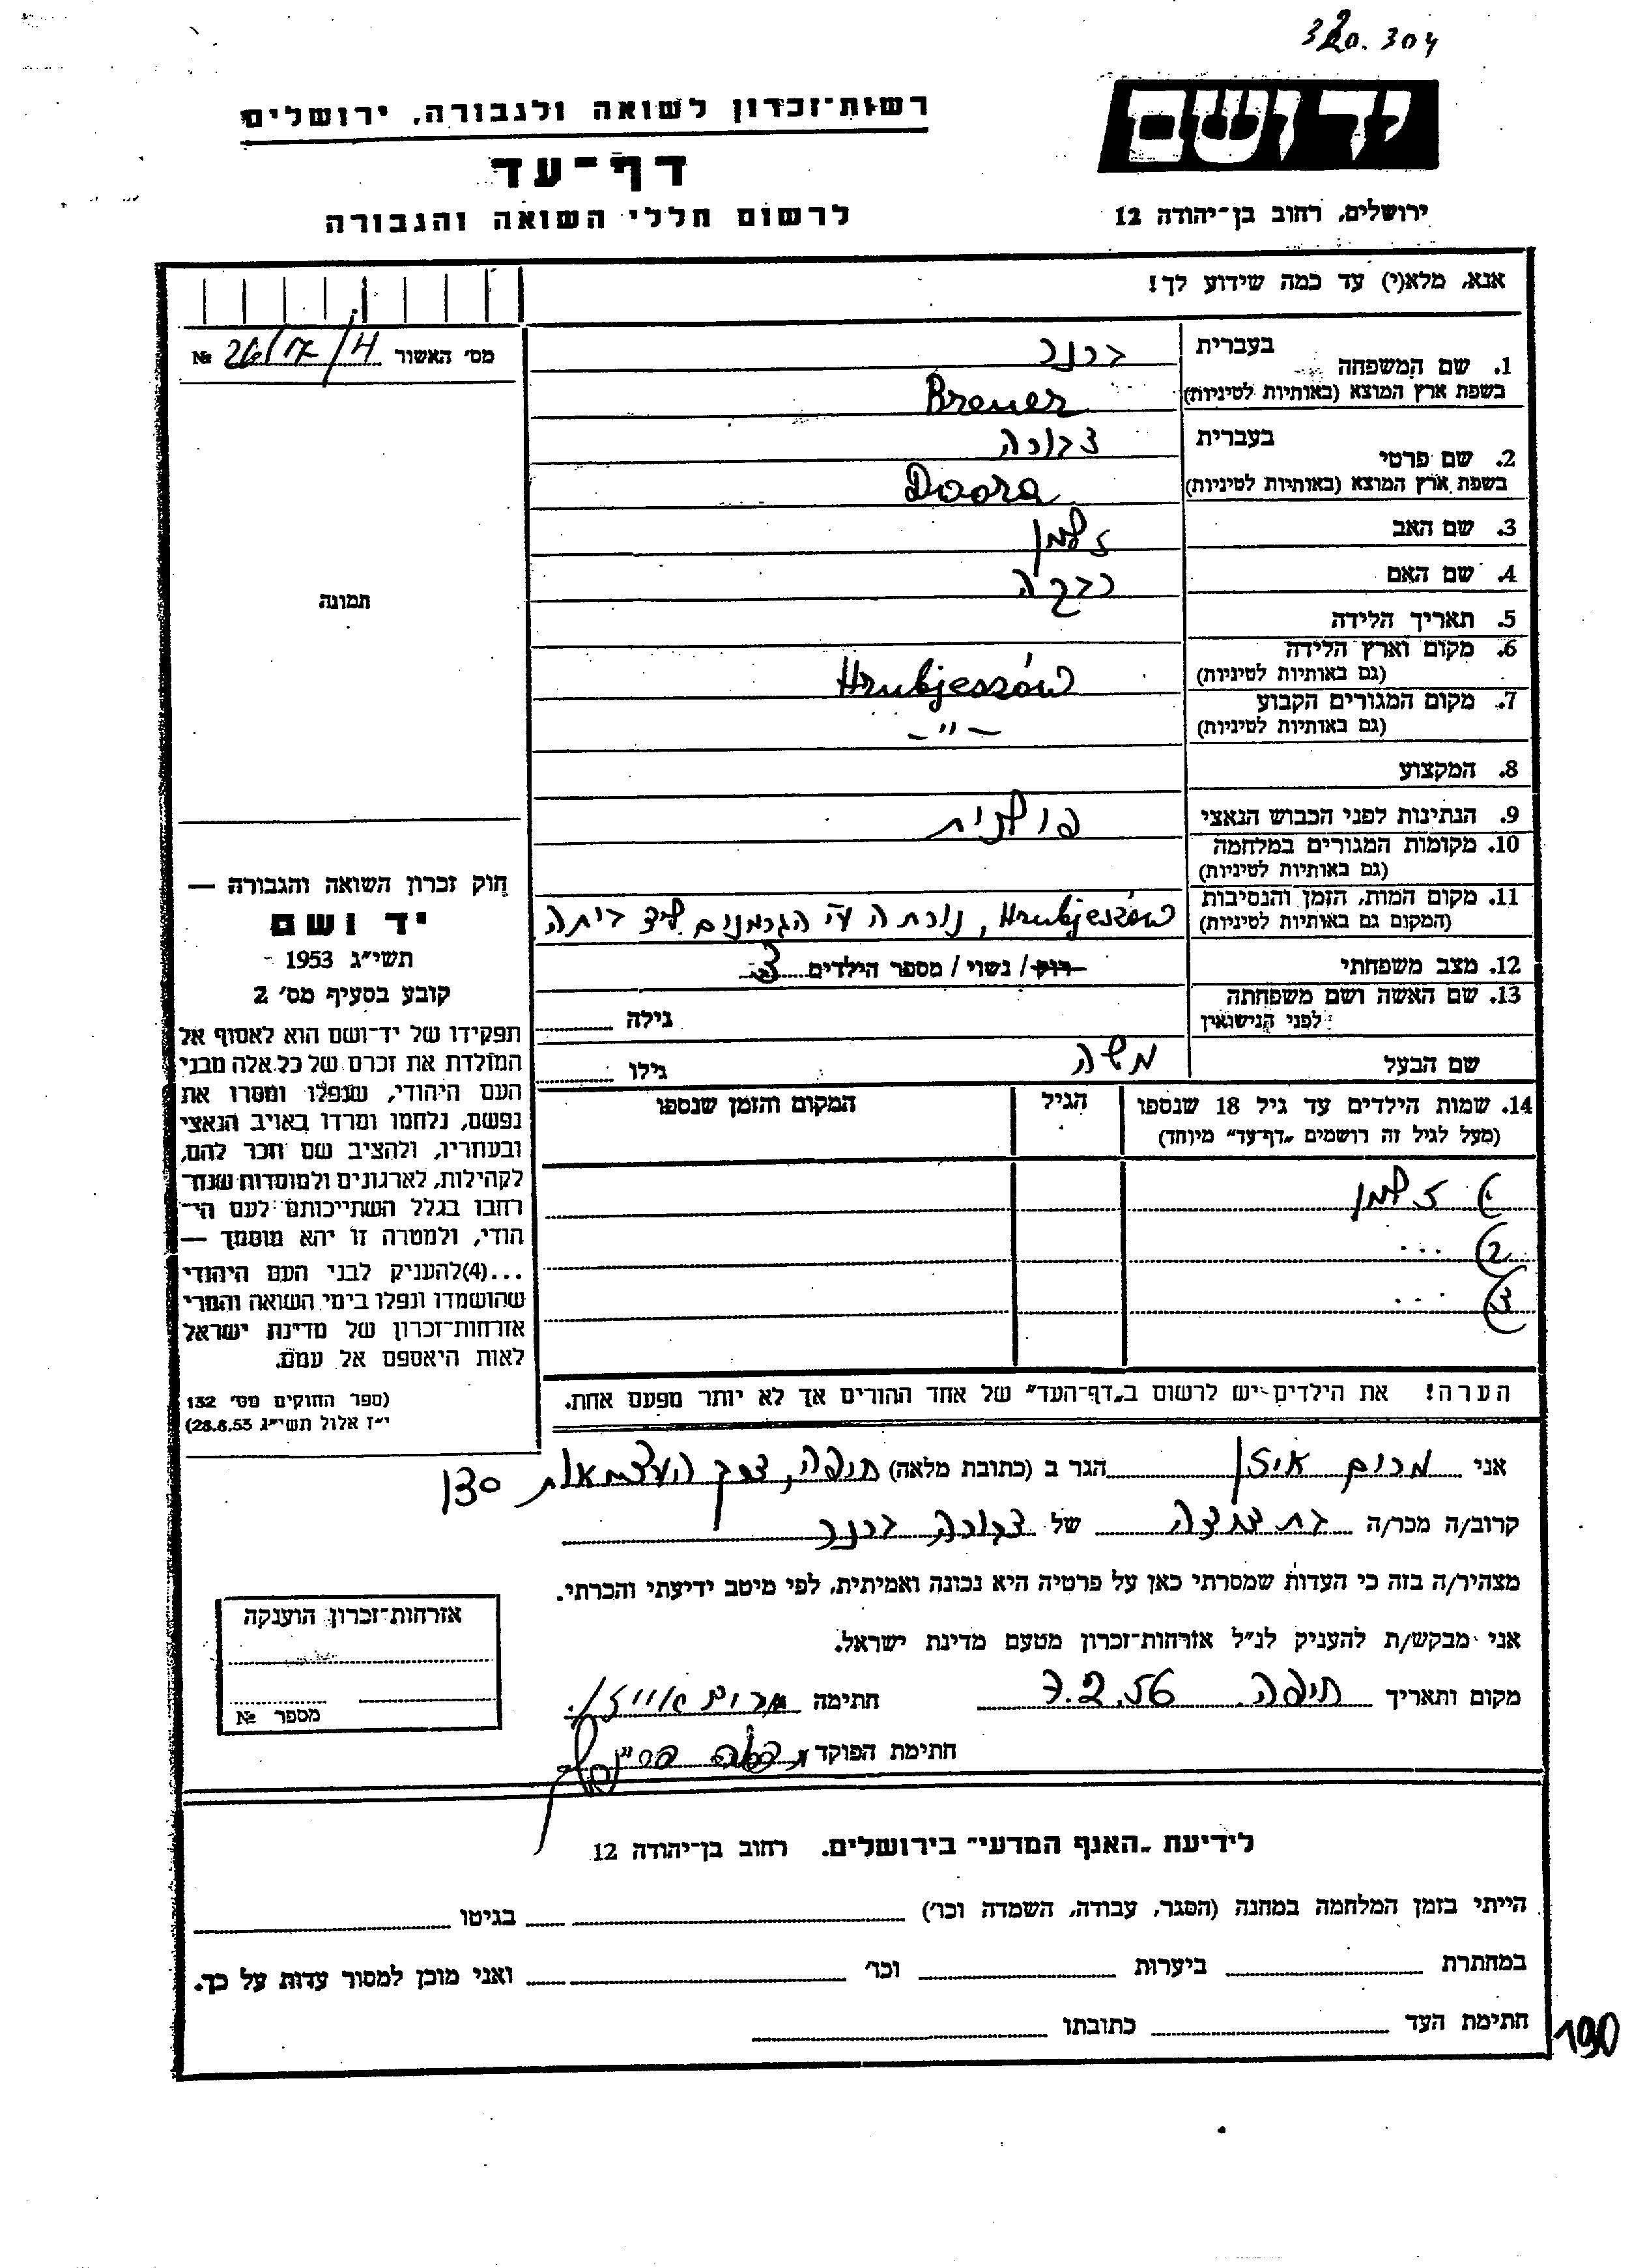 320.304
יד ושם
רשות־זכרון לשואה ולגבורה, ירושלים
דף־עד
לרשום חללי השואה והגבורה
ירושלים, רחוב בן־יהודה 12
אנא, מלא(י) עד כמה שידוע לך!
מס׳ האשור № 26/17/4
1. שם המשפחה בעברית ברנר
בשפת ארץ המוצא (באותיות לטיניות) Brener
2. שם פרטי בעברית דבורה
בשפת ארץ המוצא (באותיות לטיניות) Dwora
3. שם האב זלמן
4. שם האם רבקה
5. תאריך הלידה
6. מקום וארץ הלידה
(גם באותיות לטיניות) Hrubjeszów
7. מקום המגורים הקבוע
(גם באותיות לטיניות) — ״ —
8. המקצוע
9. הנתינות לפני הכבוש הנאצי פולנית
10. מקומות המגורים במלחמה
(גם באותיות לטיניות)
11. מקום המות, הזמן והנסיבות
(המקום גם באותיות לטיניות) Hrubjeszów, נורתה ע״י הגרמנים ליד ביתה
12. מצב משפחתי רווק / נשוי / מספר הילדים 3
13. שם האשה ושם משפחתה
לפני הנישואין גילה
שם הבעל משה גילו
14. שמות הילדים עד גיל 18 שנספו הגיל המקום והזמן שנספו
(מעל לגיל זה רושמים „דף־עד״ מיוחד)
1) זלמן
2) ...
3) ...
הערה! את הילדים יש לרשום ב„דף־העד״ של אחד ההורים אך לא יותר מפעם אחת.
תמונה
חוק זכרון השואה והגבורה —
יד ושם
תשי״ג 1953 -
קובע בסעיף מס׳ 2
תפקידו של יד־ושם הוא לאסוף אל
המולדת את זכרם של כל אלה מבני
העם היהודי, שנפלו ומסרו את
נפשם, נלחמו ומרדו באויב הנאצי
ובעוזריו, ולהציב שם וזכר להם,
לקהילות, לארגונים ולמוסדות שנח־
רבו בגלל השתייכותם לעם הי־
הודי, ולמטרה זו יהא מוסמך —
...(4)להעניק לבני העם היהודי
שהושמדו ונפלו בימי השואה והמרי
אזרחות־זכרון של מדינת ישראל
לאות היאספם אל עמם.
(ספר החוקים מס׳ 132
י״ז אלול תשי״ג 28.8.53)
אני מרים אייזן הגר ב (כתובת מלאה) חיפה, דרך העצמאות 130
קרוב/ה מכר/ה בת דודה של דבורה ברנר
מצהיר/ה בזה כי העדות שמסרתי כאן על פרטיה היא נכונה ואמיתית, לפי מיטב ידיעתי והכרתי.
אני מבקש/ת להעניק לנ״ל אזרחות־זכרון מטעם מדינת ישראל.
מקום ותאריך חיפה 7.2.56 חתימה מרים אייזן
חתימת הפוקד
אזרחות־זכרון הוענקה
מספר №
לידיעת „האגף המדעי״ בירושלים. רחוב בן־יהודה 12
הייתי בזמן המלחמה במחנה (הסגר, עבודה, השמדה וכו׳) בגיטו
במחתרת ביערות וכו׳ ואני מוכן למסור עדות על כך.
חתימת העד כתובתו
190